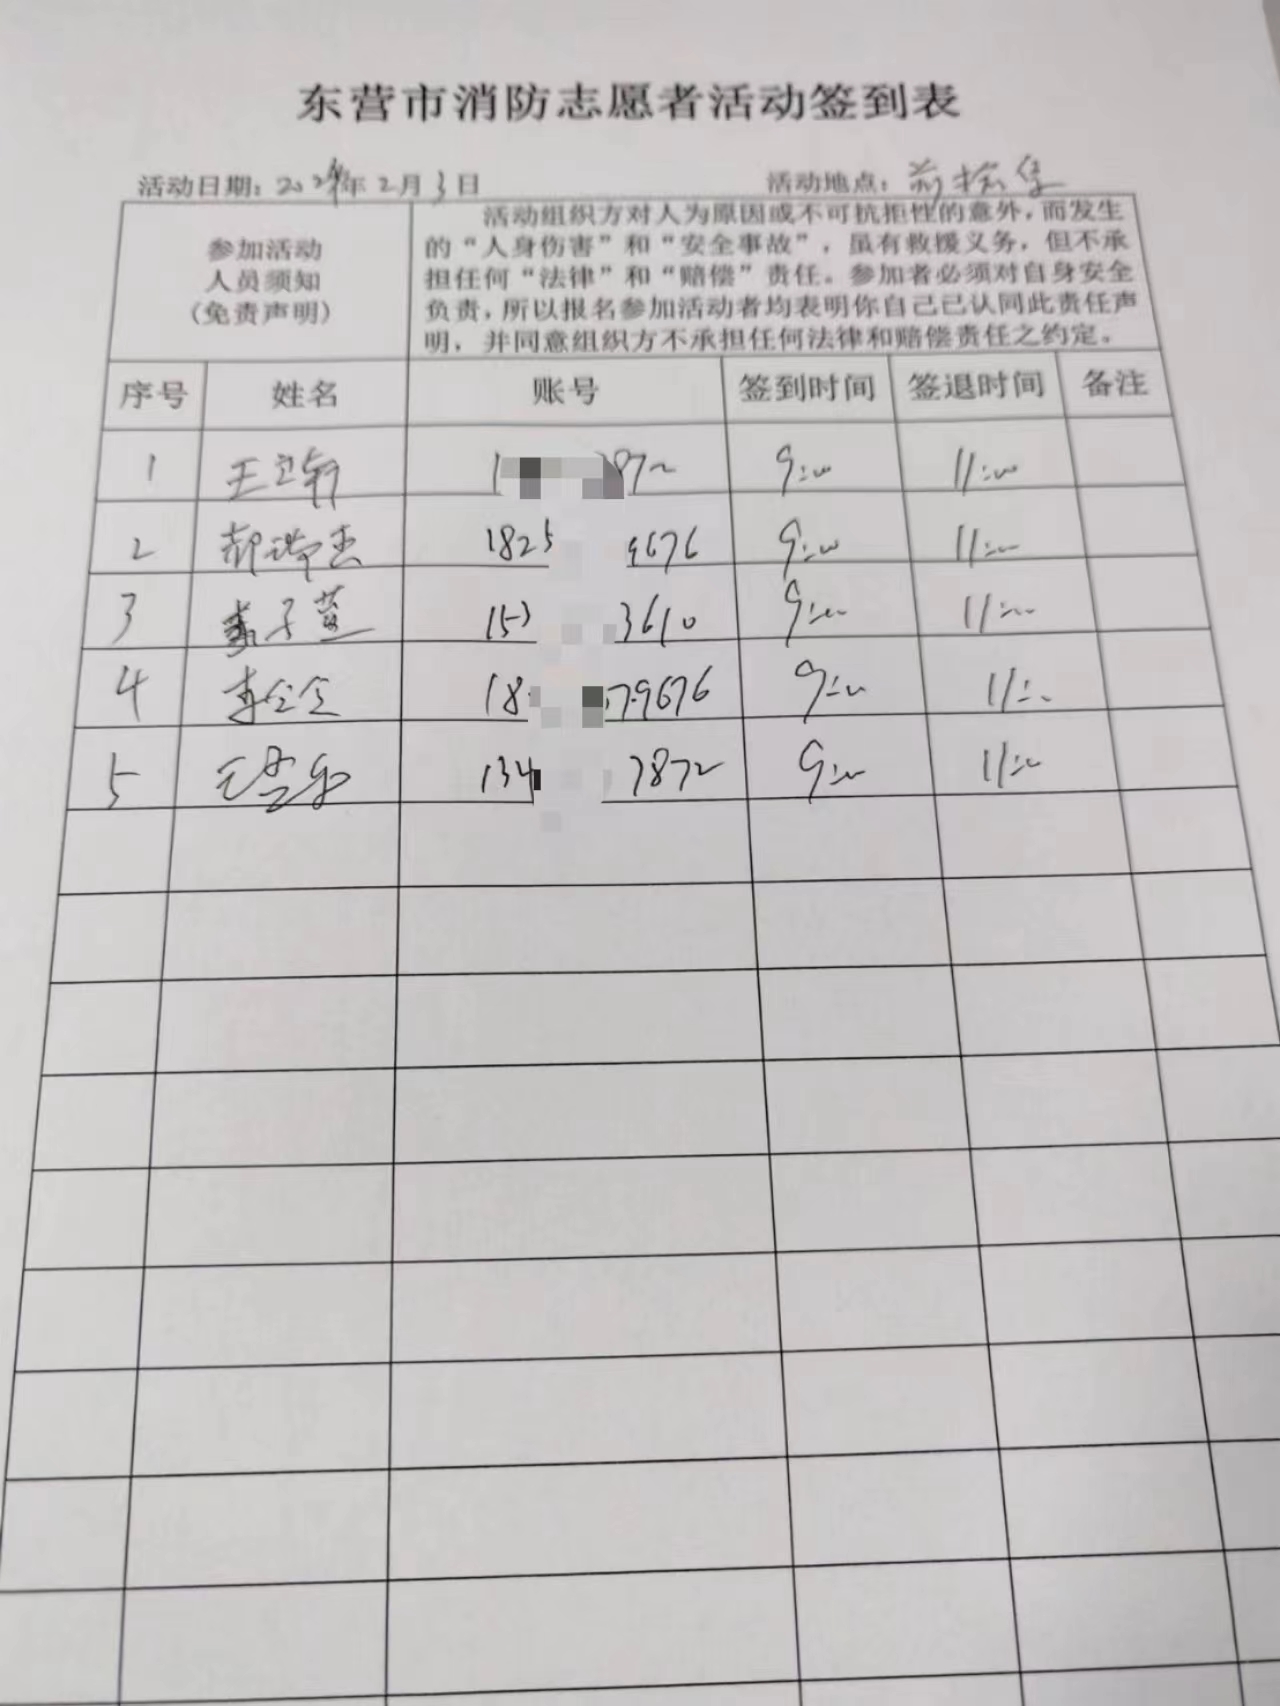 东营市消防志愿者活动签到表
活动日期：202 年2月3日 活动地点：
参加活动
人员须知
(免责声明)
活动组织方对人为原因或不可抗拒性的意外，而发生
的“人身伤害”和“安全事故”，虽有救援义务，但不承
担任何“法律”和“赔偿”责任。参加者必须对自身安全
负责，所以报名参加活动者均表明你自己已认同此责任声
明，并同意组织方不承担任何法律和赔偿责任之约定。
序号 姓名 账号 签到时间 签退时间 备注
1 王 1 872 9:00 11:00
2 郝瑞杰 1825 9676 9:00 11:00
3 子 153 3610 9:00 11:00
4 李 18 79676 9:00 11:00
5 王 134 7872 9:00 11:00